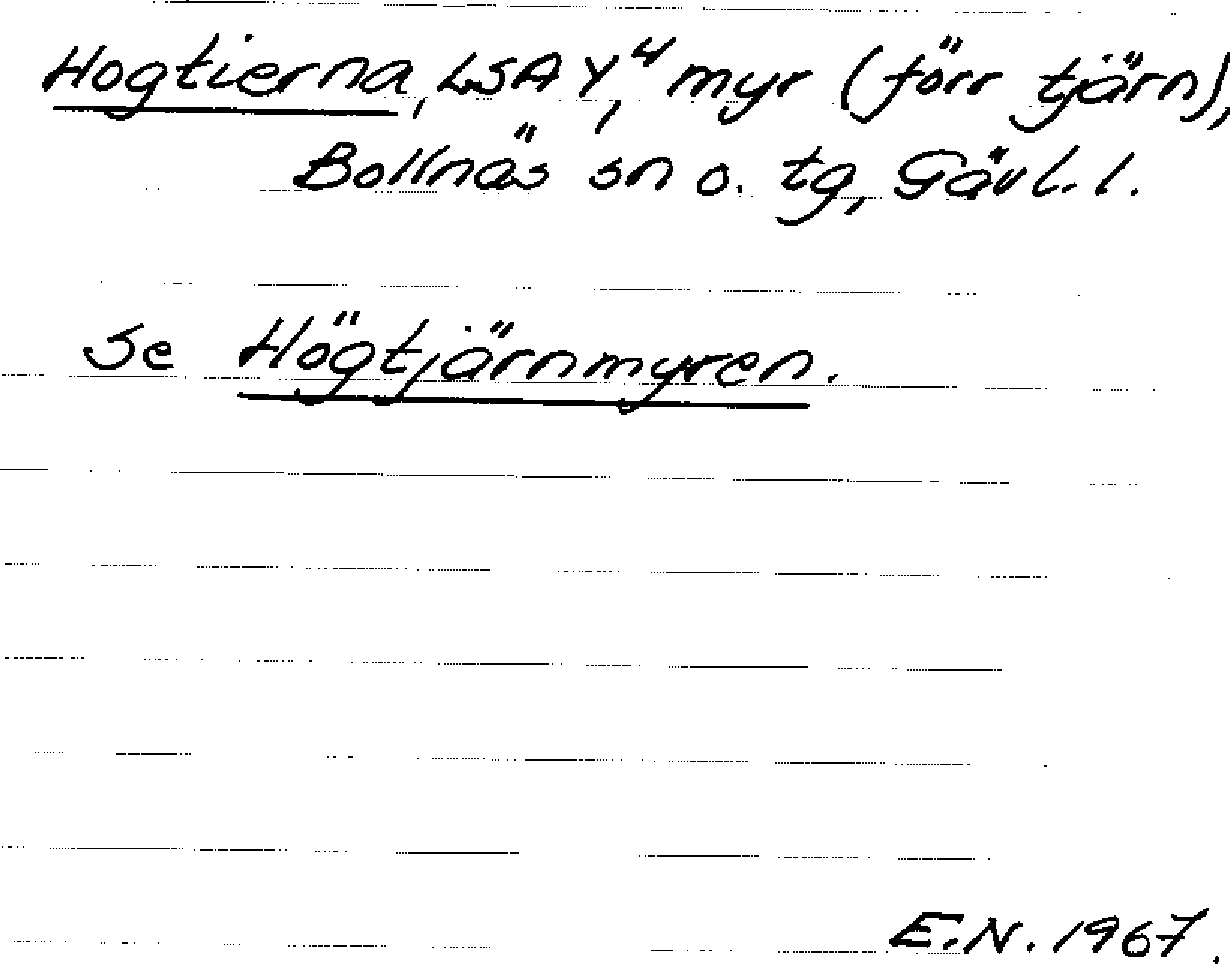 Hogtierna, LSA Y⁴, myr (förr tjärn),
Bollnäs sn o. tg, Gävl. l.
se Högtjärnmyren.
E.N. 1967.